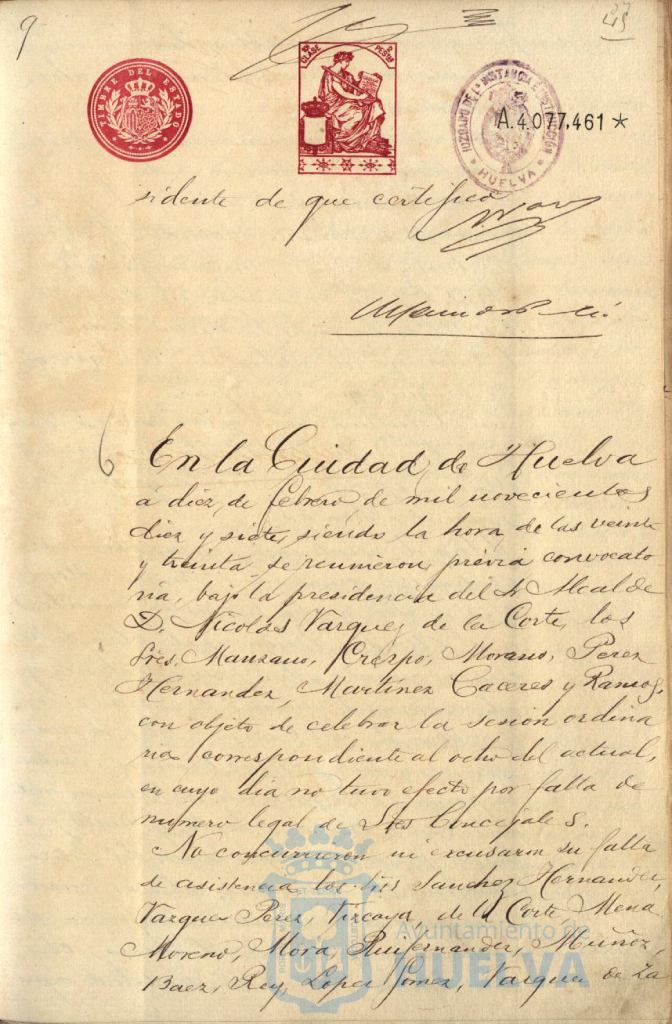 9
TIMBRE DEL ESTADO
10ª CLASE 2 PESTAS
JUZGADO DE 1ª INSTANCIA E INSTRUCCIÓN
HUELVA
A.4.077,461 *
sidente de que certifico
En la Ciudad de Huelva
á diez de febrero de mil novecientos
diez y siete, siendo la hora de las veinte
y treinta, se reunieron, prévia convocato
ria, bajo la presidencia del Sr Alcalde
D. Nicolas Vazquez de la Corte, los
Sres. Manzano, Crespo, Morano, Perez
Hernandez, Martinez Caceres y Ramos,
con objeto de celebrar la sesión ordina
ria correspondiente al ocho del actual,
en cuyo dia no tuvo efecto por falta de
número legal de Sres Concejales.
No concurrieron ni excusaron su falta
de asistencia los Sres Sanchez Hernandez,
Vazquez Perez, Vizcaya, de la Corte, Mena,
Moreno, Mora, Ruifernandez, Muñoz,
Baez, Rey, Lopez Gomez, Vazquez de Za
Ayuntamiento de
HUELVA